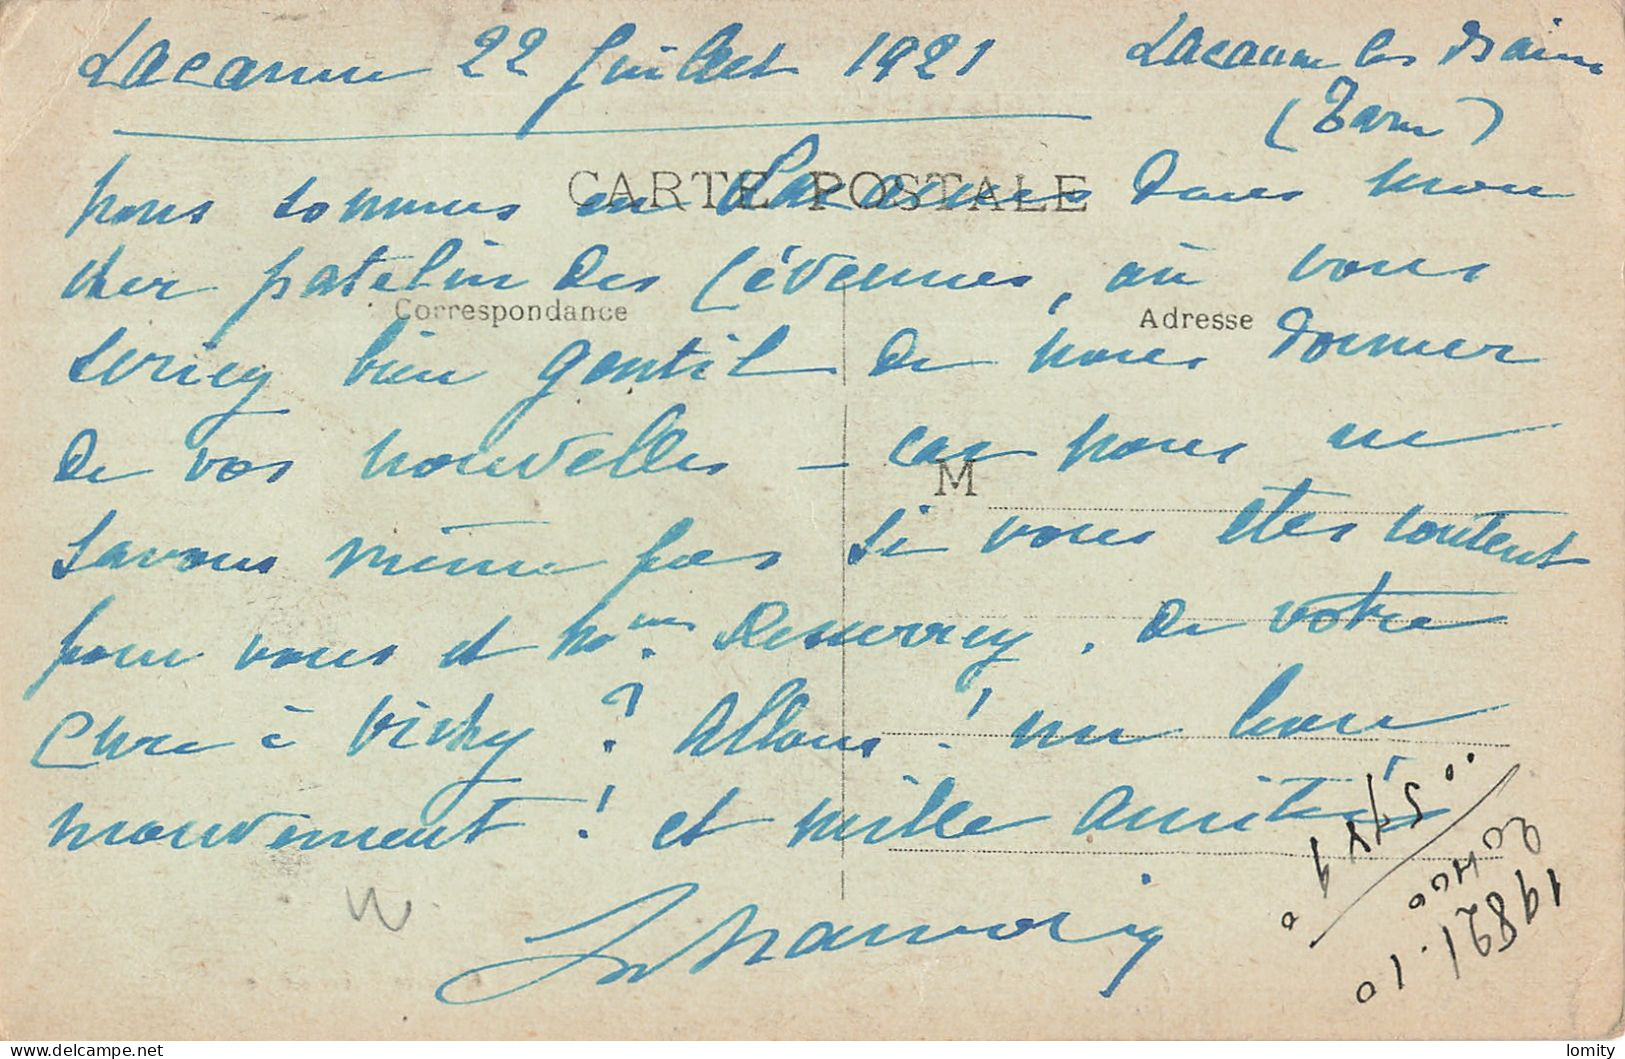 Lacaune 22 Juillet 1921
Lacaune les Bains
(Tarn)
CARTE POSTALE
nous sommes en Lacaune dans mon
cher patelin des Cévennes, où vous
Correspondance
Adresse
seriez bien gentil de nous donner
de vos nouvelles – car nous ne
M
savons même pas si vous êtes content
pour vous et Mme de votre
cure à Vichy ? Allons ! un bon
mouvement ! et mille amitiés
lomity